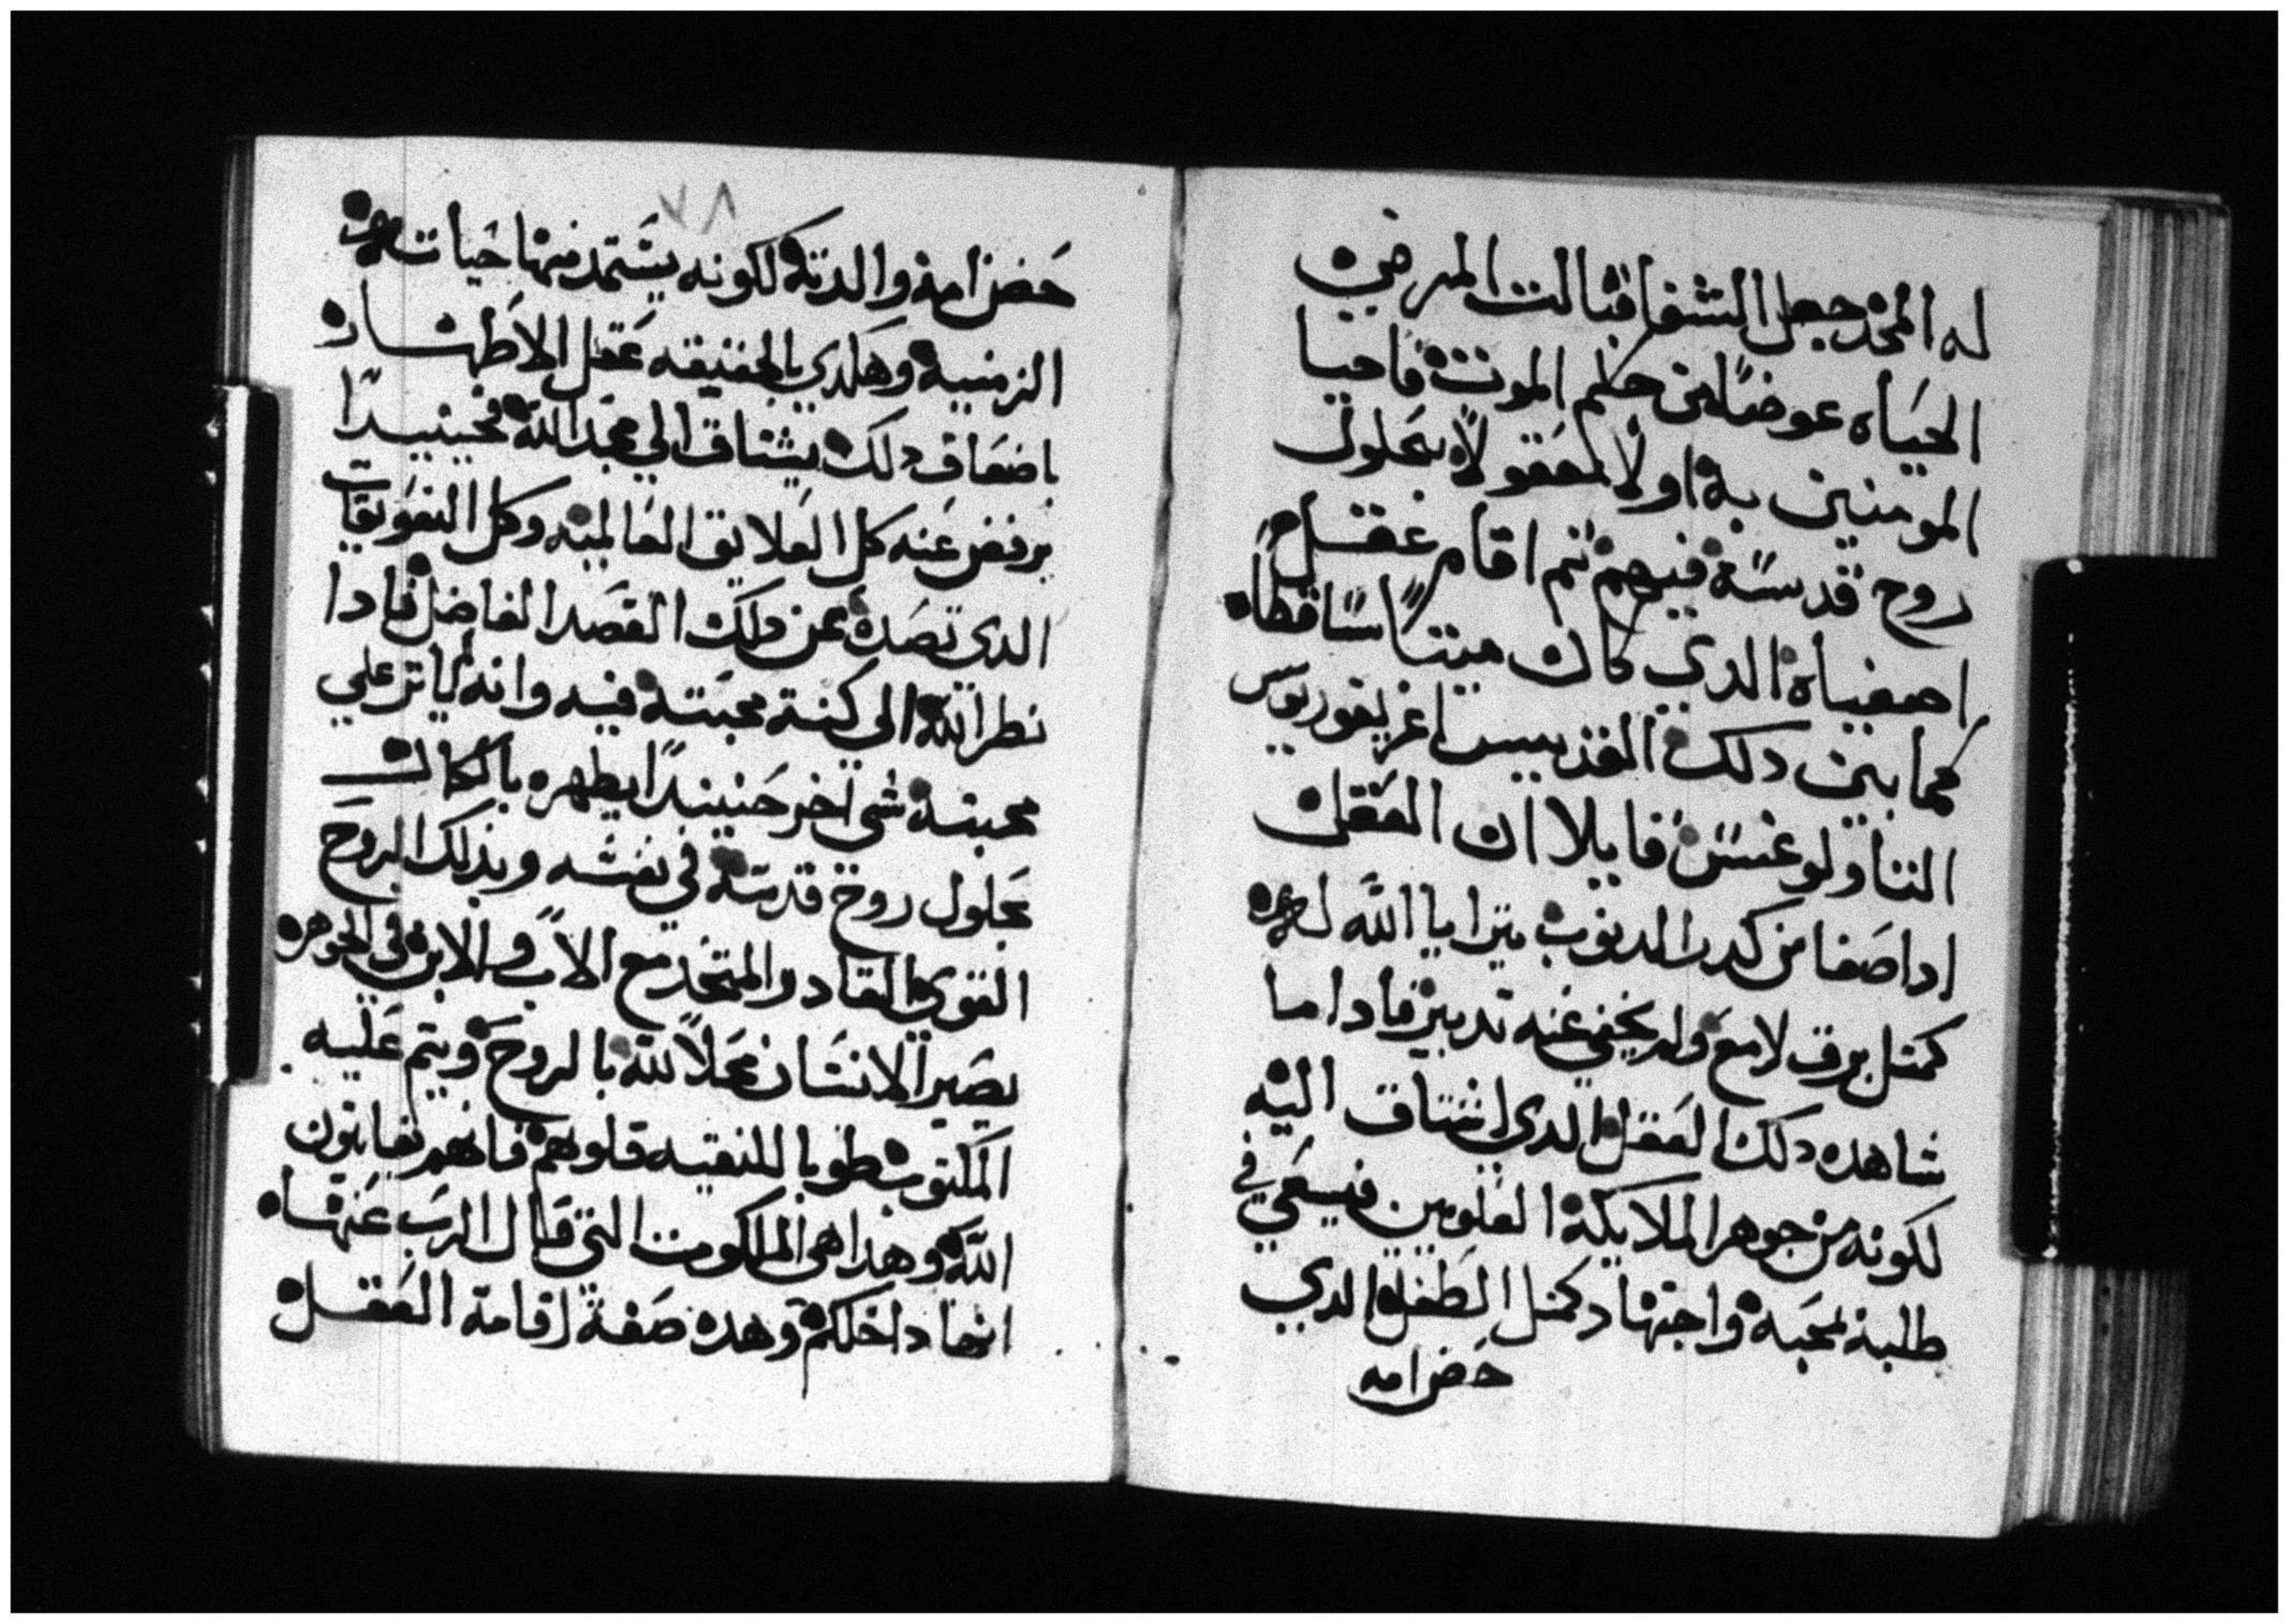 له المجد جعل الشفا قبالت المرض
الحياه عوضًا من حكم الموت فاحيا
المومنين به اولًا لمعقولًا بحلول
روح قدسه فيهم ثم اقام عقل
اصفياه الدي كان ميتًا ساقطاه
كما بين دلك القديس اغريغوريوس
التاولوغسس قايلا ان العقل
ادا صفا من كدر الدنوب يترايا الله له
كمتل برق لامع ولم يخفي عنه تدبير فادا ما
شاهد دلك العقل الدي اشتاق اليه
لكونه من جوهر الملايكة العلويين فيسعي في
طلبه بمحبه واجتهاد كمتل الطفل الدي
حضن امه
٧٨
حضن امه والدته لكونه يستمد منها حيات
الزمنيه وهكدي بالحقيقه عقل الاطهاره
باضعاف دلك يشتاق الي مجد الله فحينيدًا
يرفض عنه كل العلايق العالميه وكل التعويقات
الدي تصده عن دلك القصد الفاضل فادا
نظر الله الي كنة محبته فيه وانه لياتر علي
محبته شي اخر حنيندًا يطهره بالكمال
بحلول روح قدسه في نفسه وبذلك الروح
القوي القادر المتحد مع الاب والابن في الجوهره
يصير الانسان محلًا لله بالروح ويتم عليه
المكتوب طوبا للنقيه قلوبهم فانهم يعاينون
الله وهدا هي الملكوت التي قال الرب عنهاه
انها داخلكم وهده صفة اقامة العقل